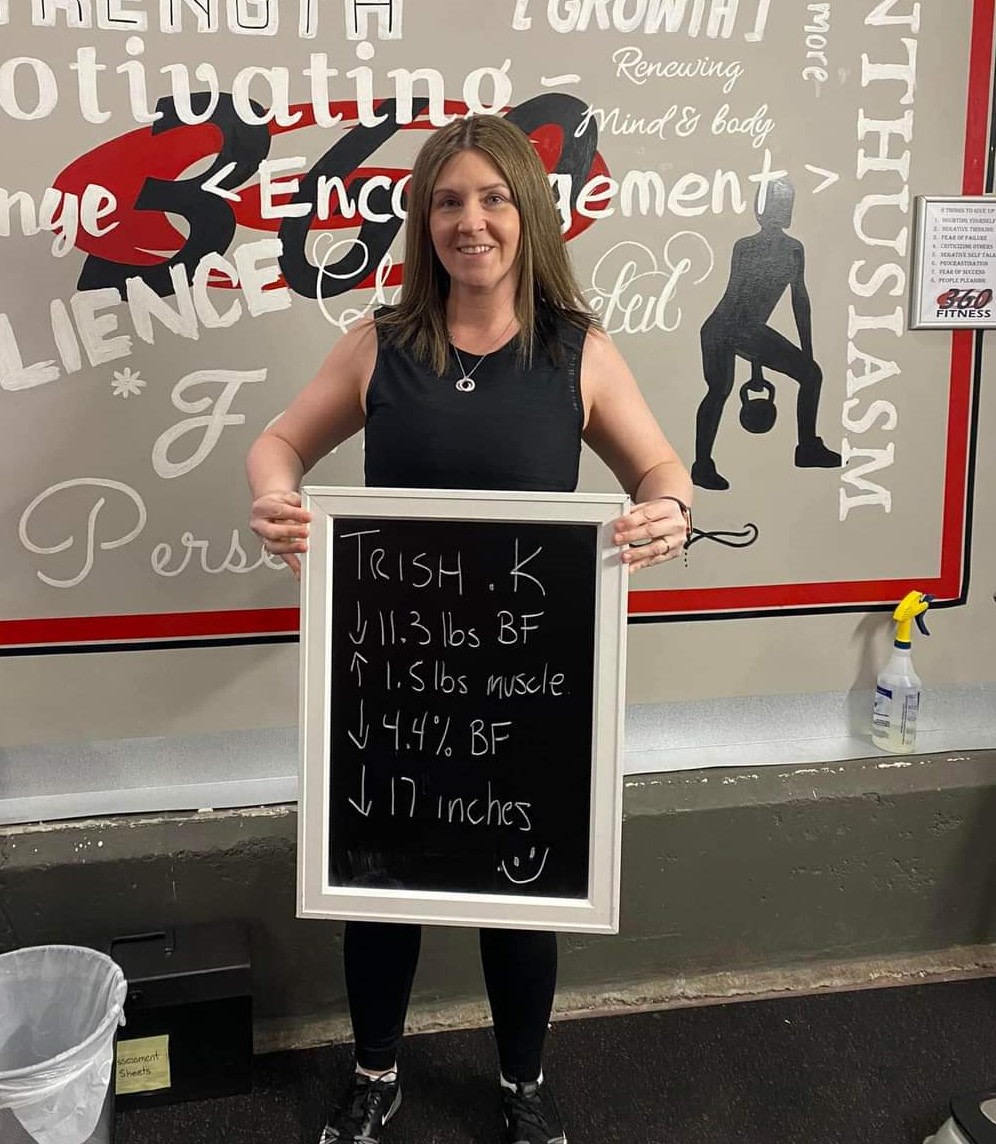 TRENGTH
[GROWTH]
more
otivating
Renewing
Mind & body
360
nge
<Enco gement>
NTHUSIASM
LIENCE
Perse
8 THINGS TO GIVE UP
1. DOUBTING YOURSELF
2. NEGATIVE THINKING
3. FEAR OF FAILURE
4. CRITICIZING OTHERS
5. NEGATIVE SELF TALK
6. PROCRASTINATION
7. FEAR OF SUCCESS
8. PEOPLE PLEASING
360
FITNESS
TRISH . K
↓ 11.3 lbs BF
↑ 1.5 lbs muscle
↓ 4.4% BF
↓ 17" inches
ssessment
Sheets